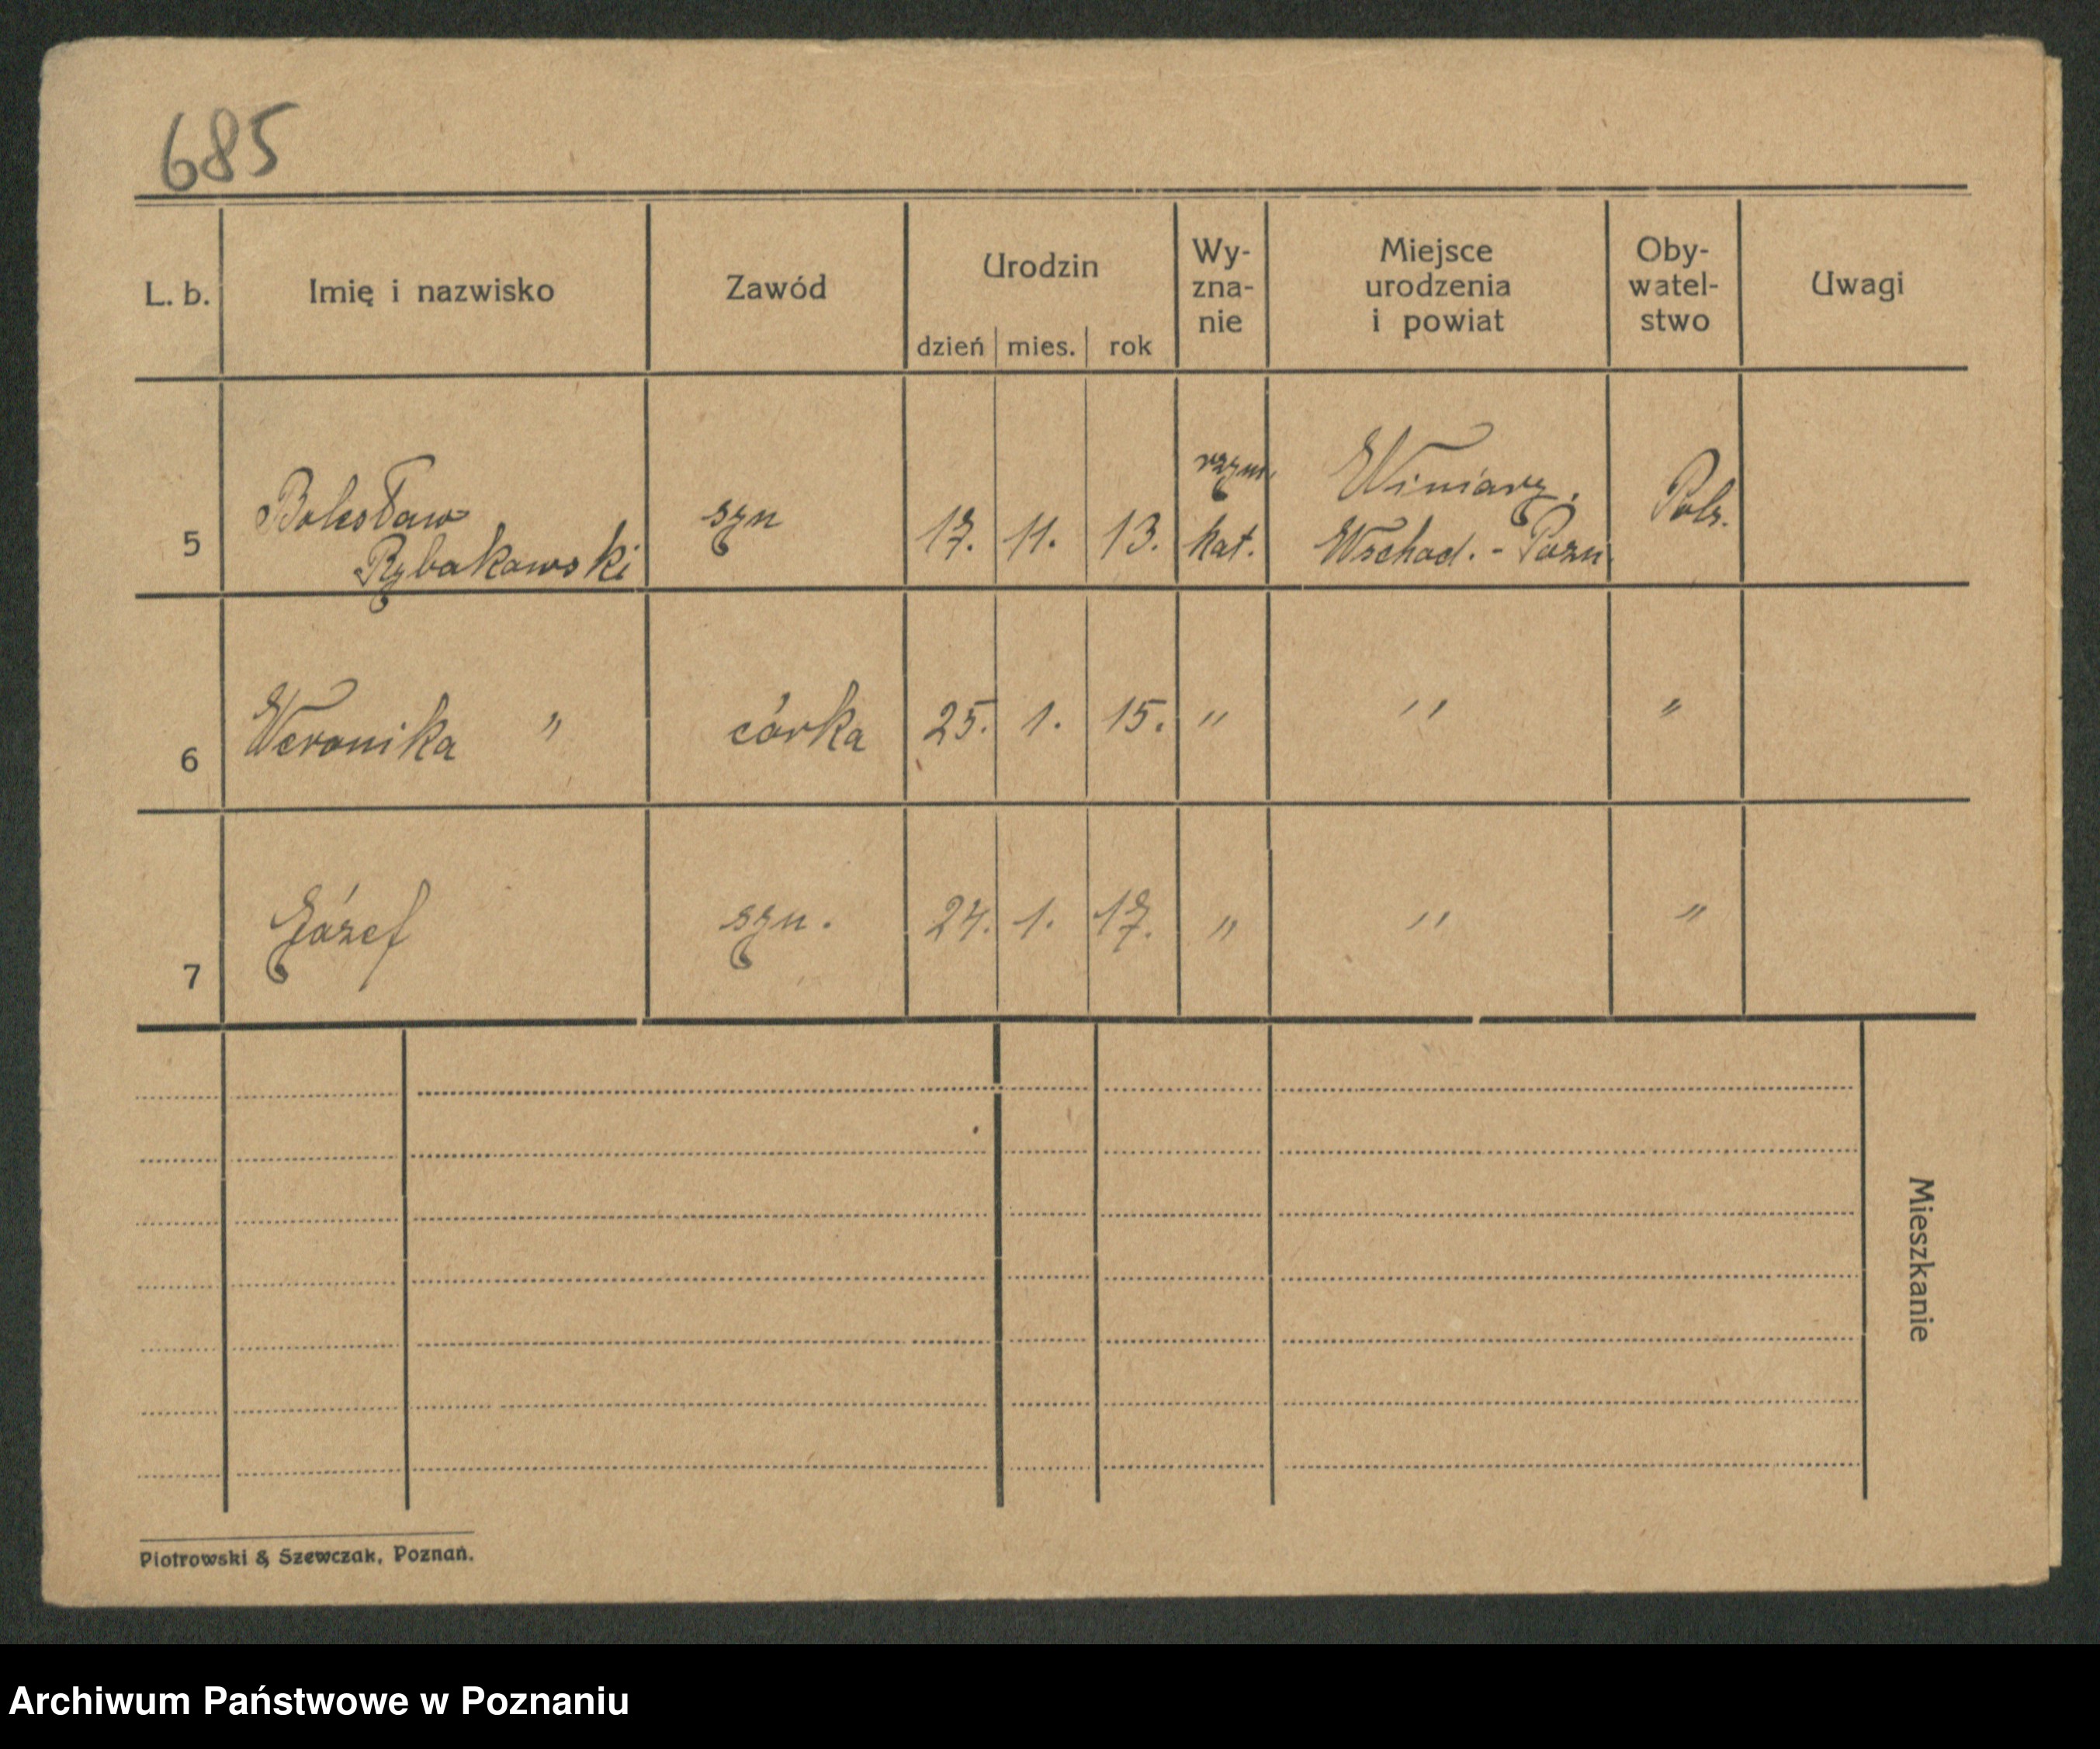 685
L. b. Imię i nazwisko Zawód Urodzin dzień mies. rok Wy-zna-nie Miejsce urodzenia i powiat Oby-watel-stwo Uwagi
5 Bolesław Rybakowski syn 17. 11. 13. rzym. kat. Winiary, Wschod. - Pozn. Pols.
6 Weronika " córka 25. 1. 15. " " "
7 Józef syn. 24. 1. 17. " " "
Mieszkanie
Piotrowski & Szewczak, Poznań.
Archiwum Państwowe w Poznaniu